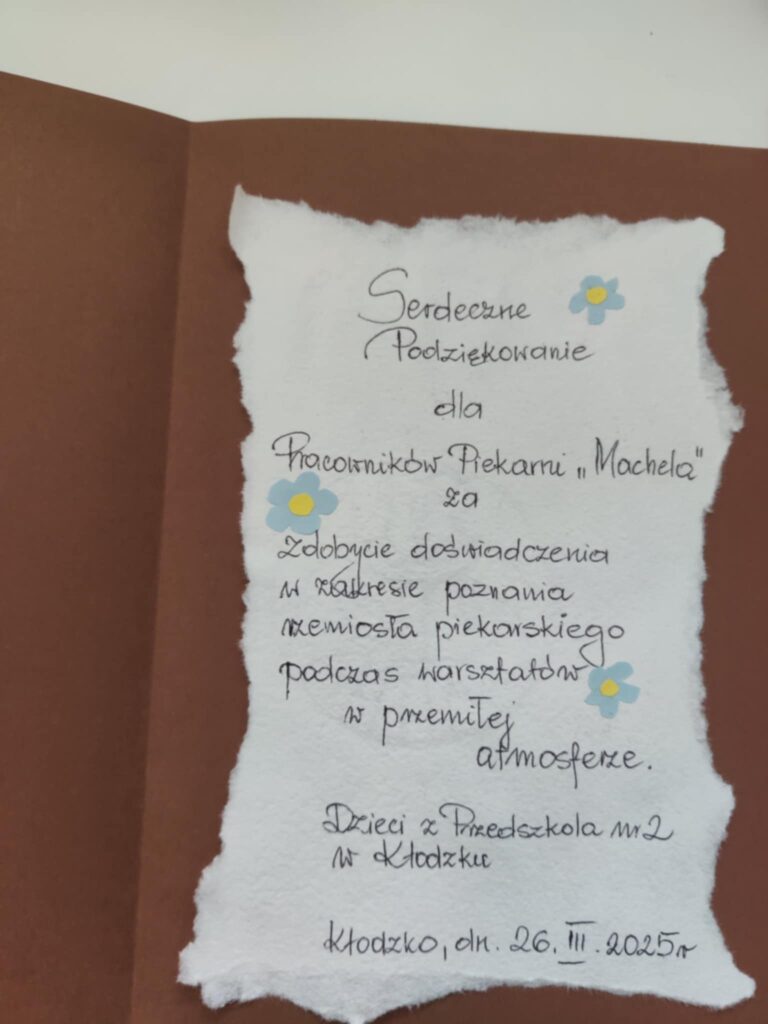 Serdeczne
Podziękowanie
dla
Pracowników Piekarni „Machela"
za
zdobycie doświadczenia
w zakresie poznania
rzemiosła piekarskiego
podczas warsztatów
w przemiłej
atmosferze.
Dzieci z Przedszkola nr 2
w Kłodzku
Kłodzko, dn. 26. III. 2025r